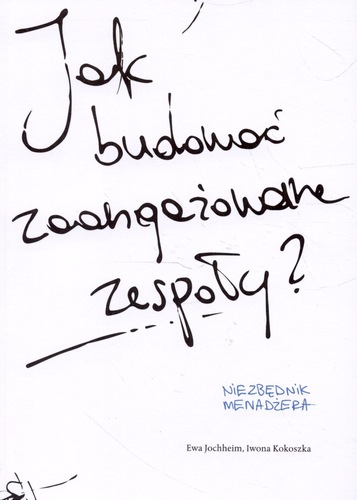 Jak
budować
zaangażowane
zespoły?
NIEZBĘDNIK
MENADŻERA
Ewa Jochheim, Iwona Kokoszka